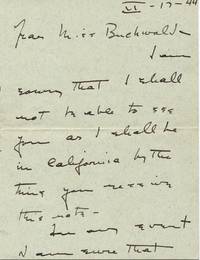 VI - 17 - 44
Dear Miss Buchwald -
I am
sorry that I shall
not be able to see
you as I shall be
in California by the
time you receive
this note -
In any event
I am sure that